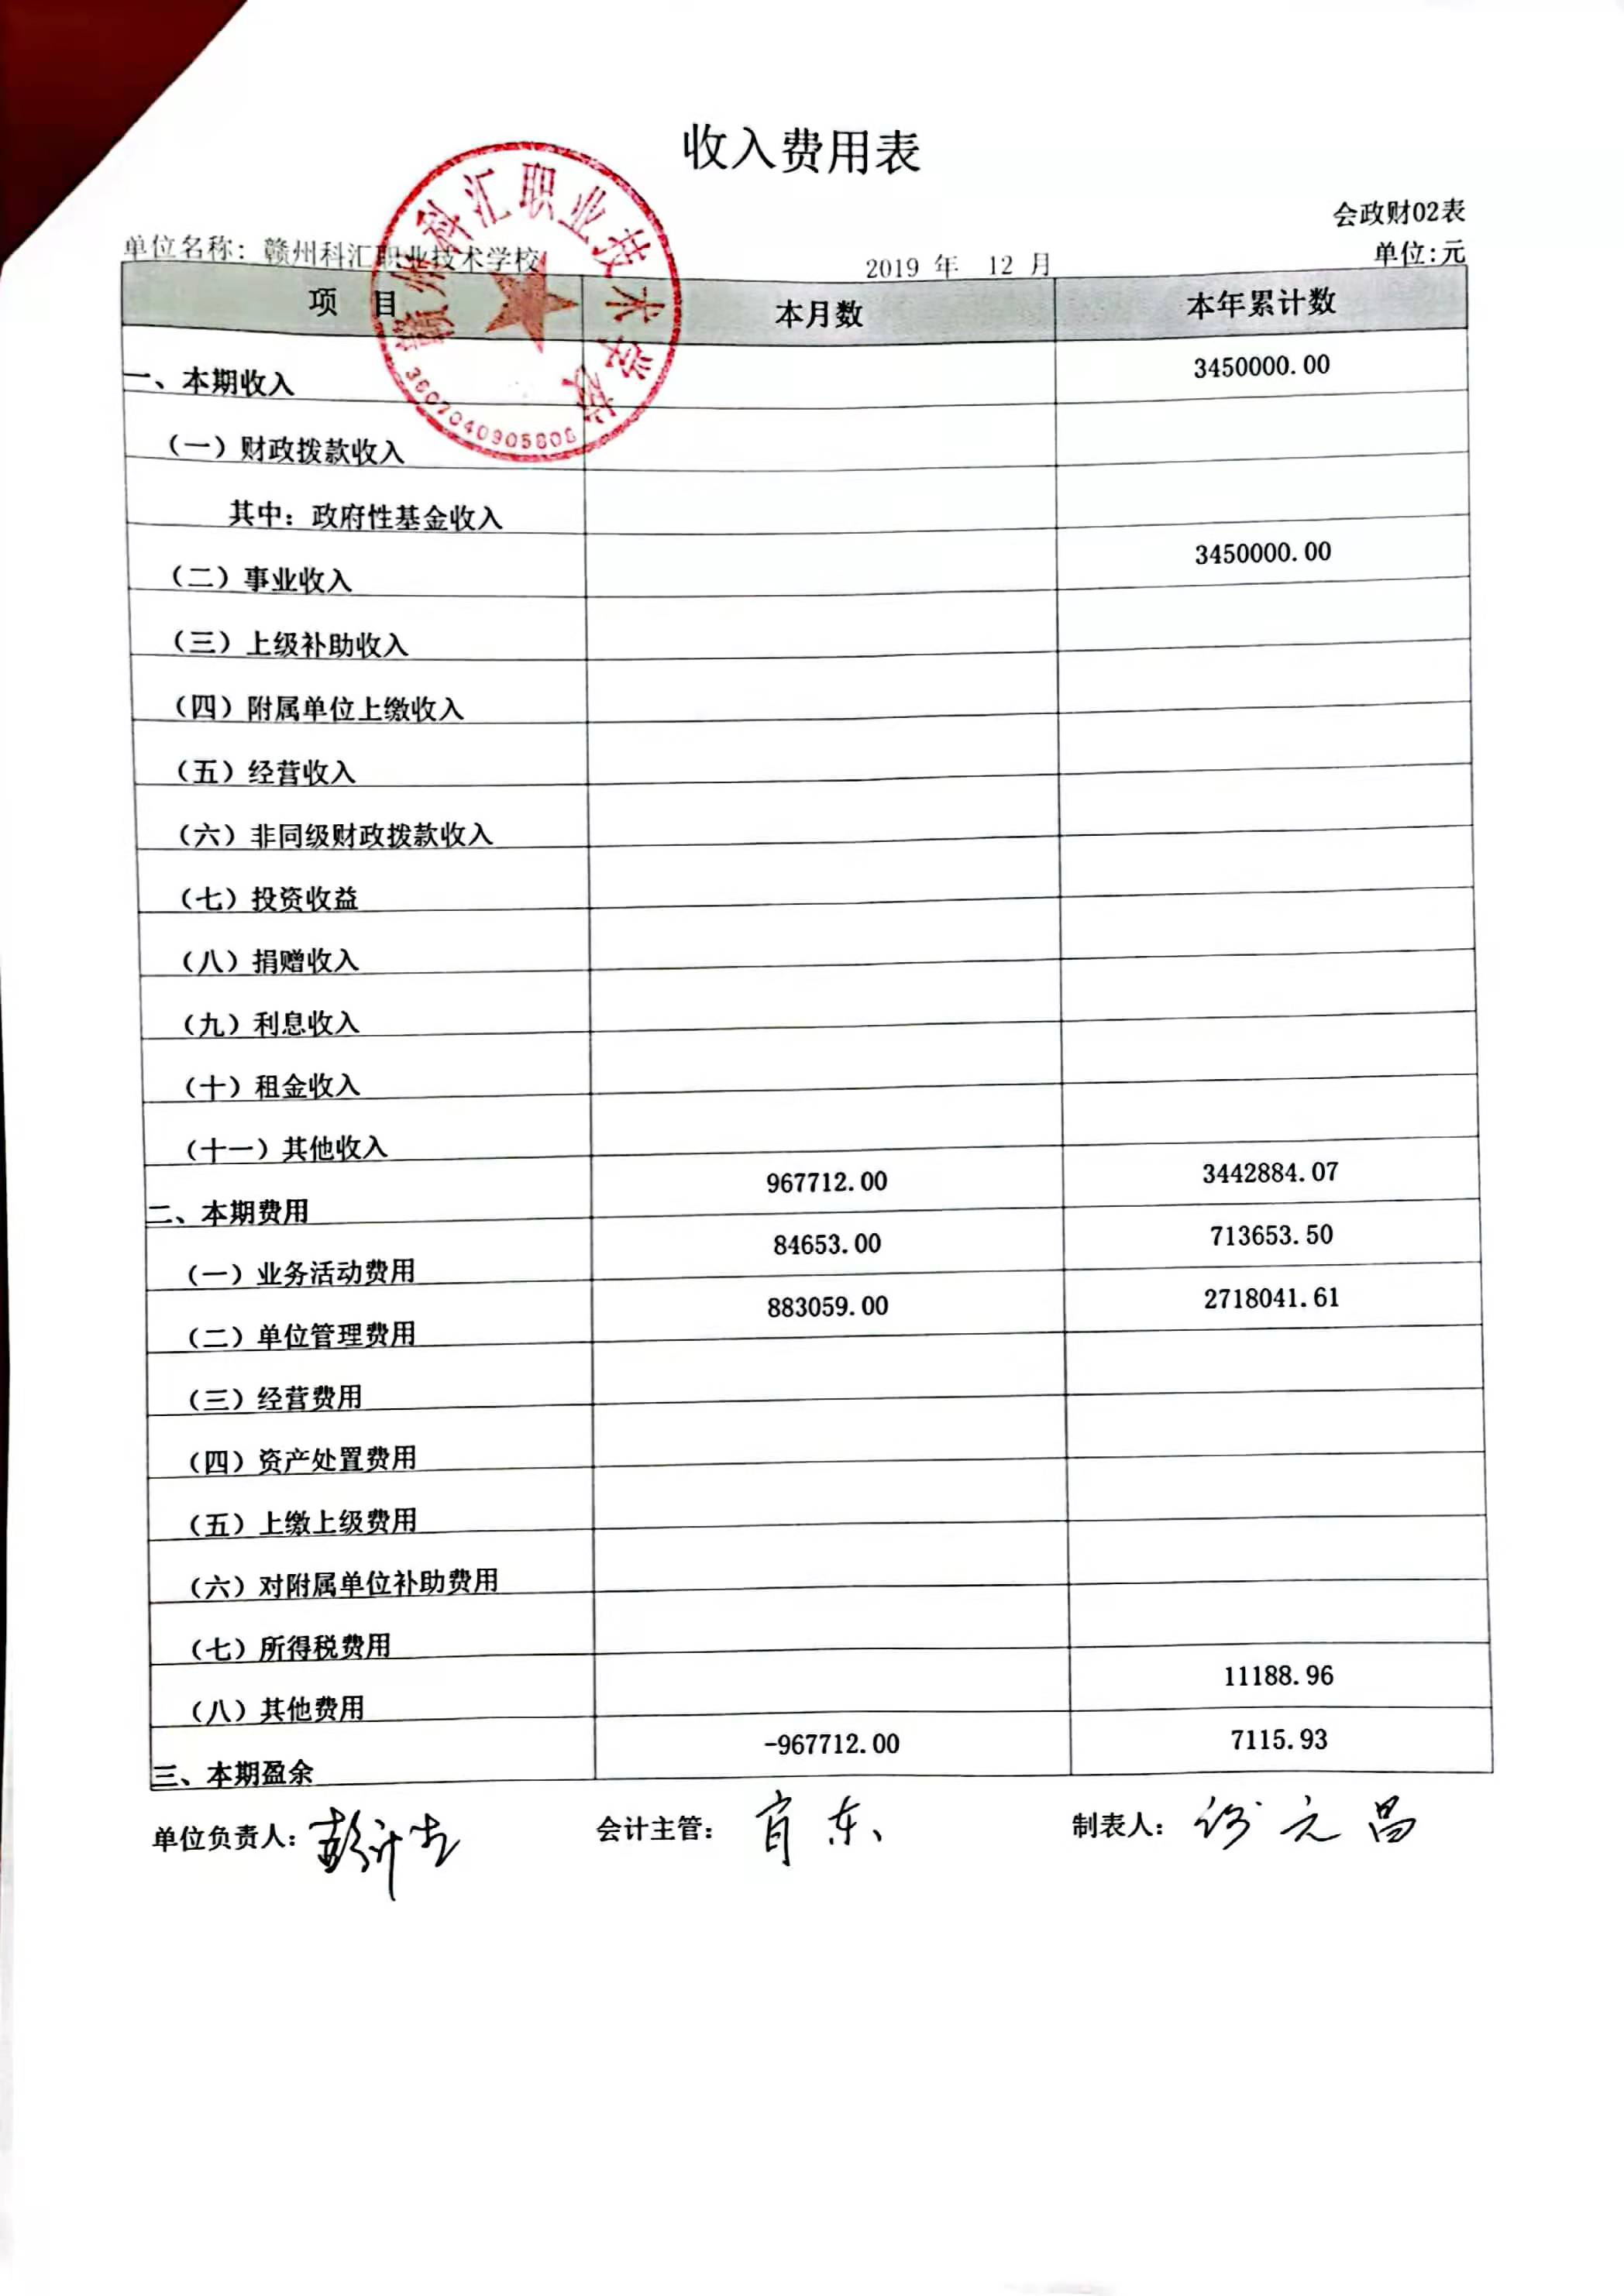 收入费用表
会政财02表
单位名称：赣州科汇职业技术学校 2019 年 12 月 单位:元
赣州科汇职业技术学校
项 目 本月数 本年累计数
一、本期收入 3450000.00
（一）财政拨款收入
其中：政府性基金收入
（二）事业收入 3450000.00
（三）上级补助收入
（四）附属单位上缴收入
（五）经营收入
（六）非同级财政拨款收入
（七）投资收益
（八）捐赠收入
（九）利息收入
（十）租金收入
（十一）其他收入
二、本期费用 967712.00 3442884.07
（一）业务活动费用 84653.00 713653.50
（二）单位管理费用 883059.00 2718041.61
（三）经营费用
（四）资产处置费用
（五）上缴上级费用
（六）对附属单位补助费用
（七）所得税费用
（八）其他费用 11188.96
三、本期盈余 -967712.00 7115.93
单位负责人： 会计主管： 制表人：